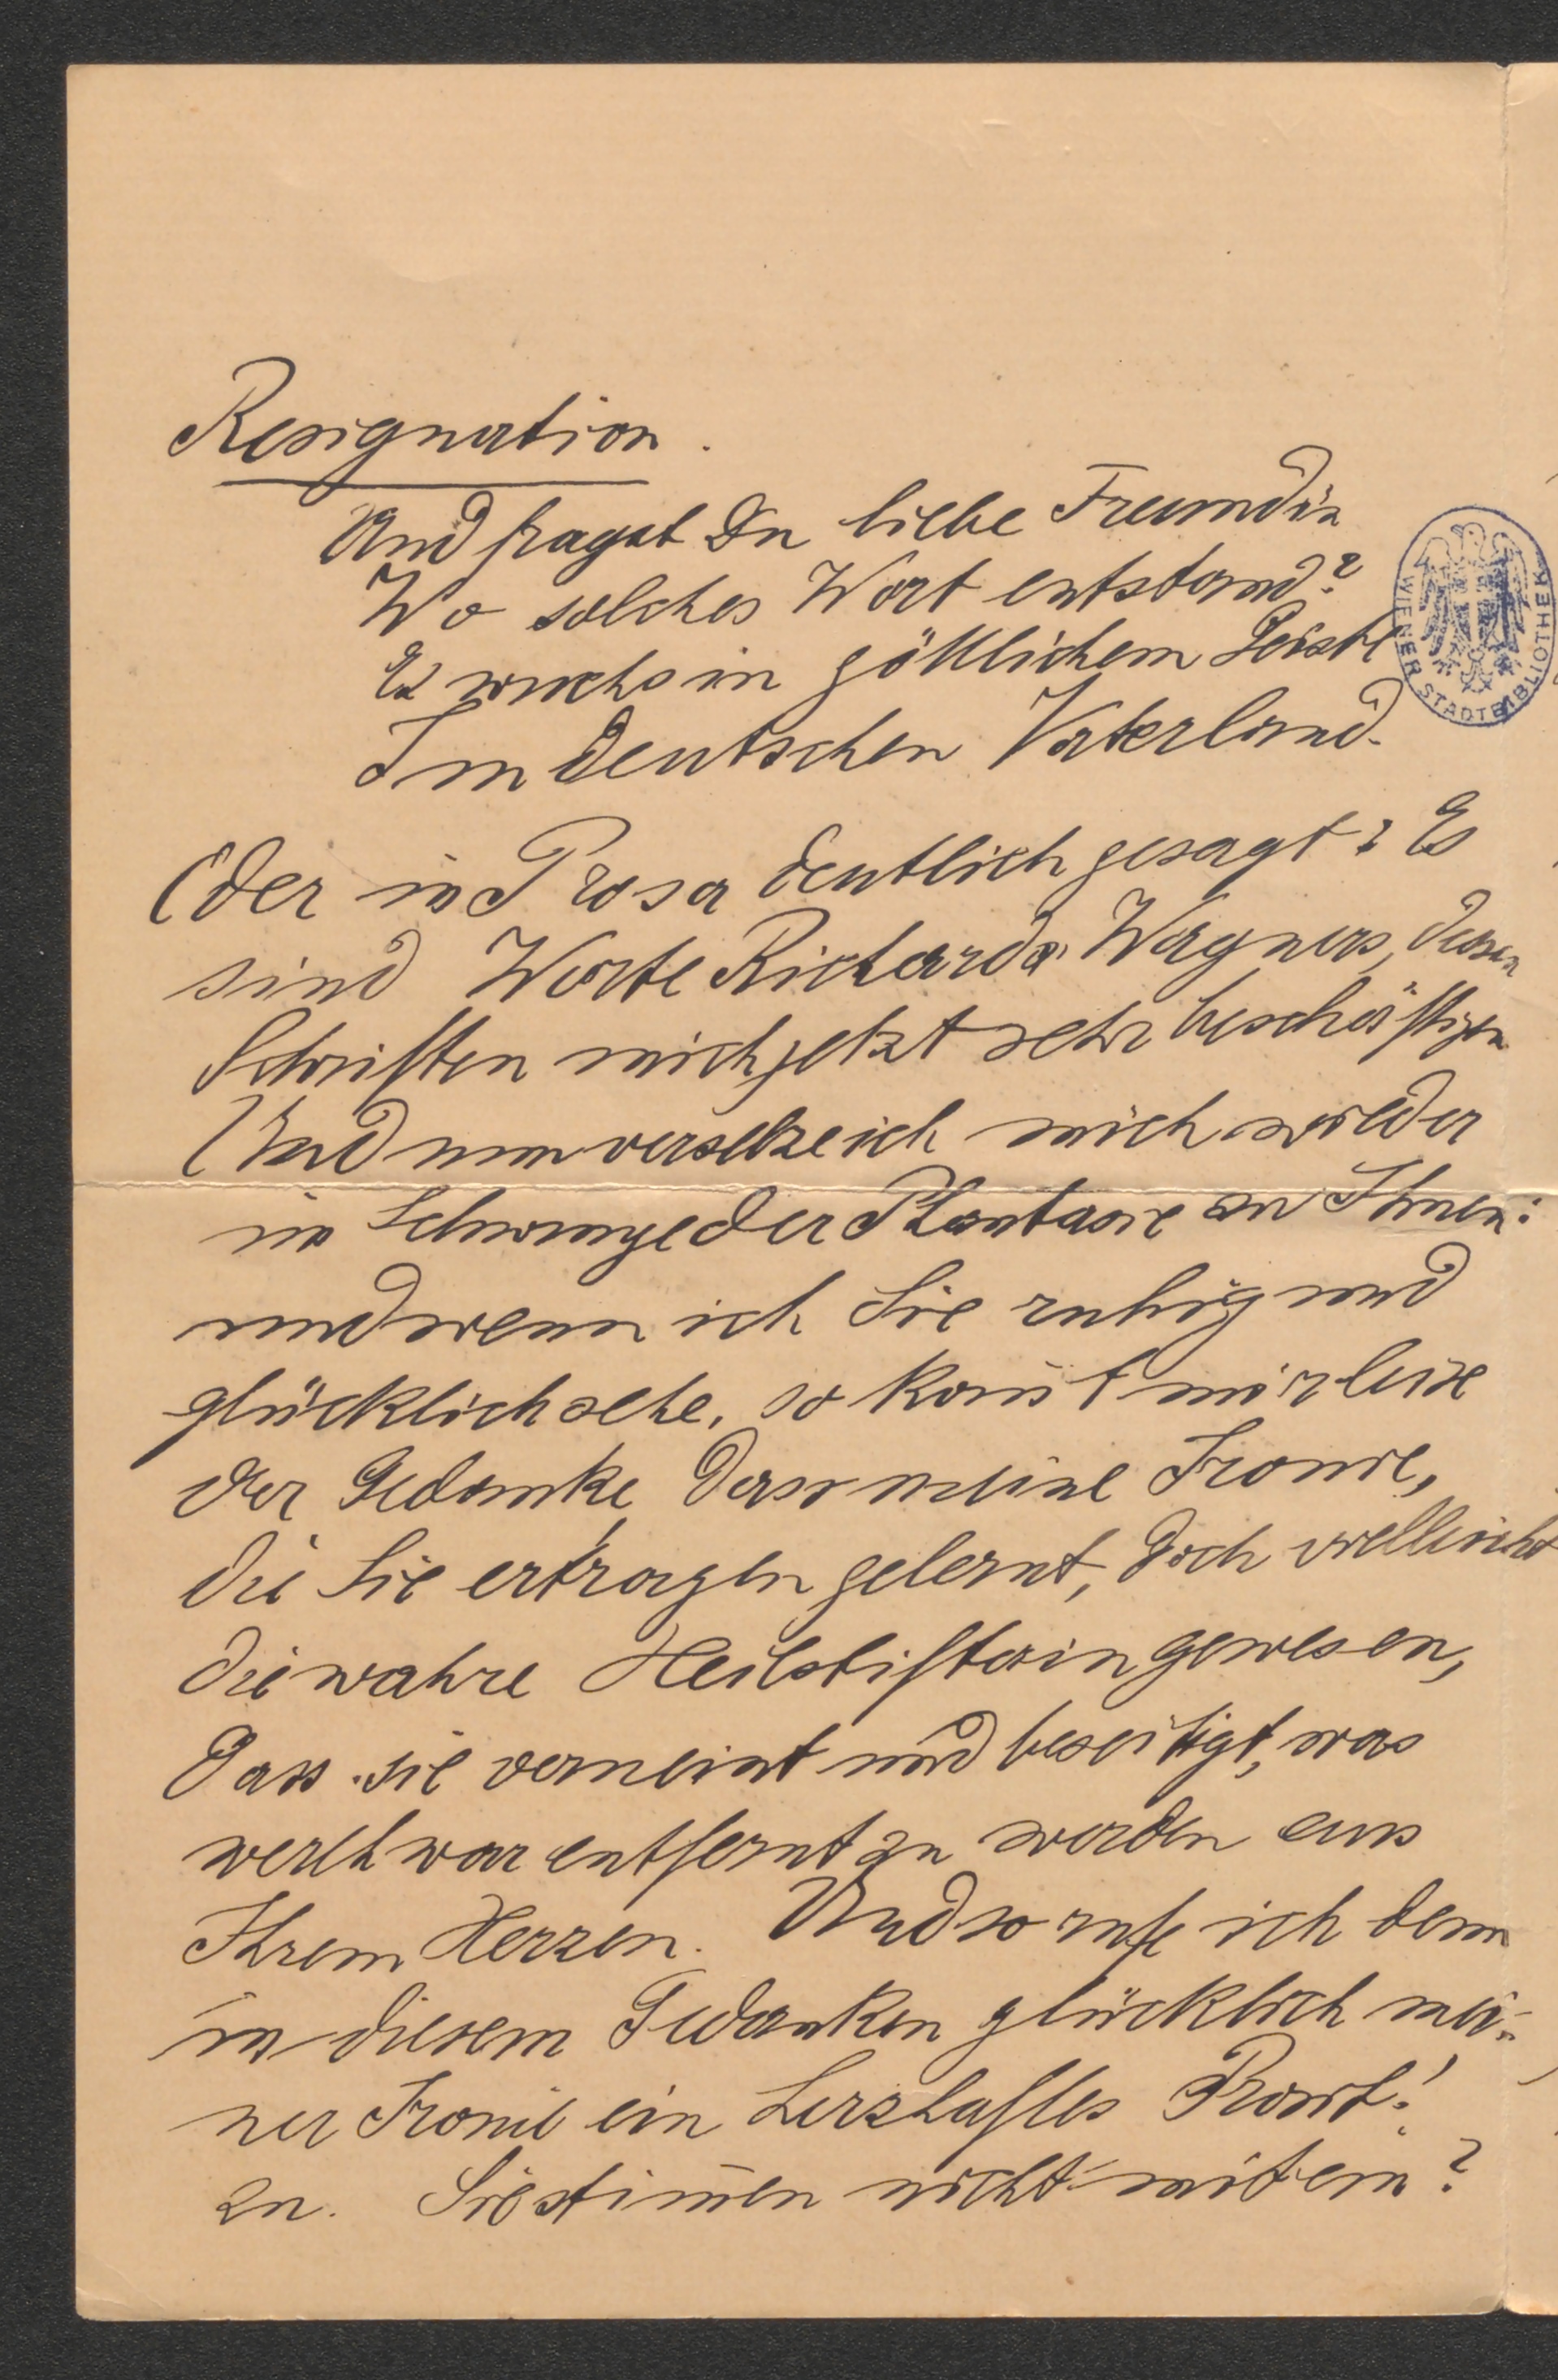 Resignation.
Und fragst Du liebe Freundin
Wo solches Wort entstand?
Es wuchs in göttlichem Geiste
Im deutschen Vaterland.
Oder in Prosa deutlich gesagt: Es
sind Worte Richards Wagners, dessen
Schriften mich jetzt sehr beschäftigen
Und nun versetze ich mich wieder
im Schwunge der Phantasie zu Ihnen:
und wenn ich Sie ruhig und
glücklich sehe, so kom̄t mir leise
der Gedanke, dass meine Ironie,
die Sie ertragen gelernt, doch vielleicht
die wahre Heilstifterin gewesen,
dass sie verneint und beseitigt, was
werth war entfernt zu werden aus
Ihrem Herzen. Und so rufe ich denn
in diesem Gedanken glücklich mei-
ner Ironie ein herzhaftes Prosit!
zu. Sie stim̄en nicht mit ein?
WIENER STADTBIBLIOTHEK